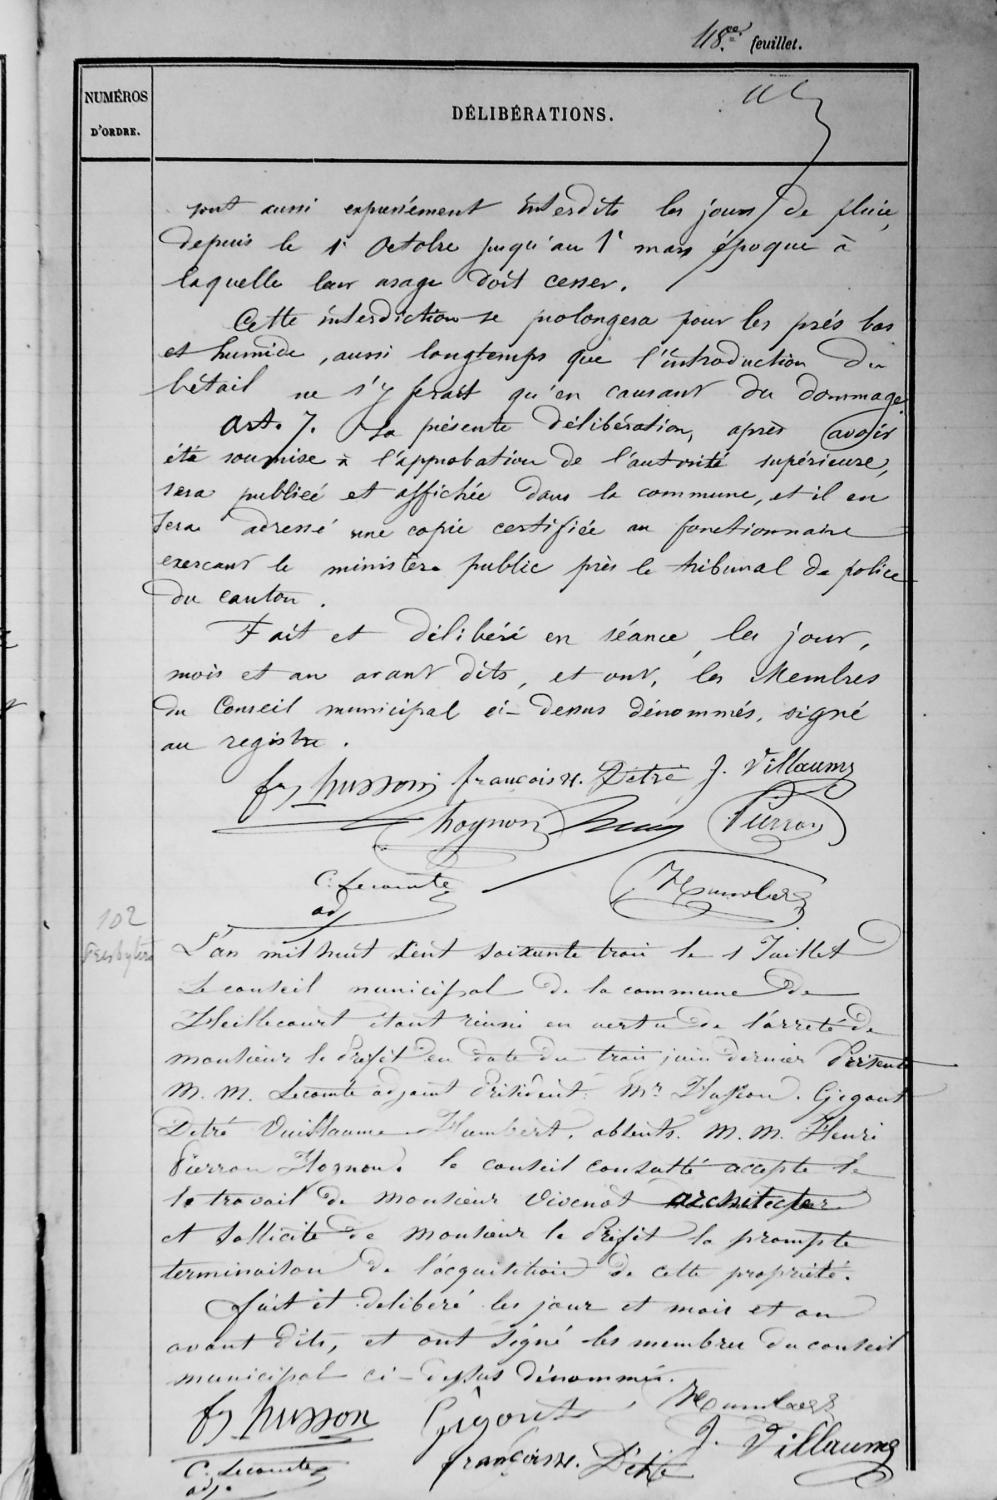 118.e feuillet.
NUMÉROS
D'ORDRE.
DÉLIBÉRATIONS.
sont aussi expressément interdits les jours de pluie,
depuis le 1r Octobre jusqu'au 1r mars époque à
laquelle leur usage doit cesser.
Cette interdiction se prolongera pour les prés bas
et humide, aussi longtemps que l'introduction du
bétail ne s'y ferait qu'en causant du dommage.
Art. 7. La présente délibération, après avoir
été soumise à l'approbation de l'autorité supérieure,
sera publiée et affichée dans la commune, et il en
sera adressé une copie certifiée au fonctionnaire
exercant le ministère public près le tribunal de police
du canton.
Fait et délibéré en séance, les jour,
mois et an avant dits, et ont, les Membres
du Conseil municipal ci-dessus dénommés, signé
au registre.
fs husson françois H. Détré J. Villaume
hognon Pierron
C. Lecomte
adj
Humbert
102
Presbytère
L'an mil huit cent soixante trois le 1 Juillet
Le conseil municipal de la commune de
Heillecourt étant réuni en vertu de l'arreté de
monsieur le Préfet en date du trois juin dernier Présents
M. M. Lecomte adjoint Président. Mr Husson. Gigout
Detré Vuillaume Humbert. absents. M. M. Henri
Pierron Hognon. le conseil consulté accepte le
le travail de monsieur Vivenot architecte
et sollicite de monsieur le Préfet la prompte
terminaison de l'acquisition de cette propriété.
fait et deliberé les jour et mois et an
avant dits, et ont signé les membres du conseil
municipal ci-dessus dénommés.
fs husson Gigout Humbert
C. Lecomte
adj.
françois H. Détré J. Villaume